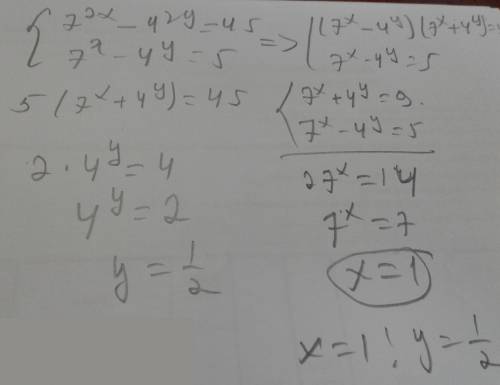 { 7^2x − 4^2y = 45
7^x − 4^y = 5 => { (7^x − 4^y)(7^x + 4^y) =
7^x − 4^y = 5
5 (7^x + 4^y) = 45
{ 7^x + 4^y = 9.
7^x − 4^y = 5
2 · 4^y = 4
4^y = 2
y = 1/2
27^x = 14
7^x = 7
x = 1
x = 1 ; y = 1/2